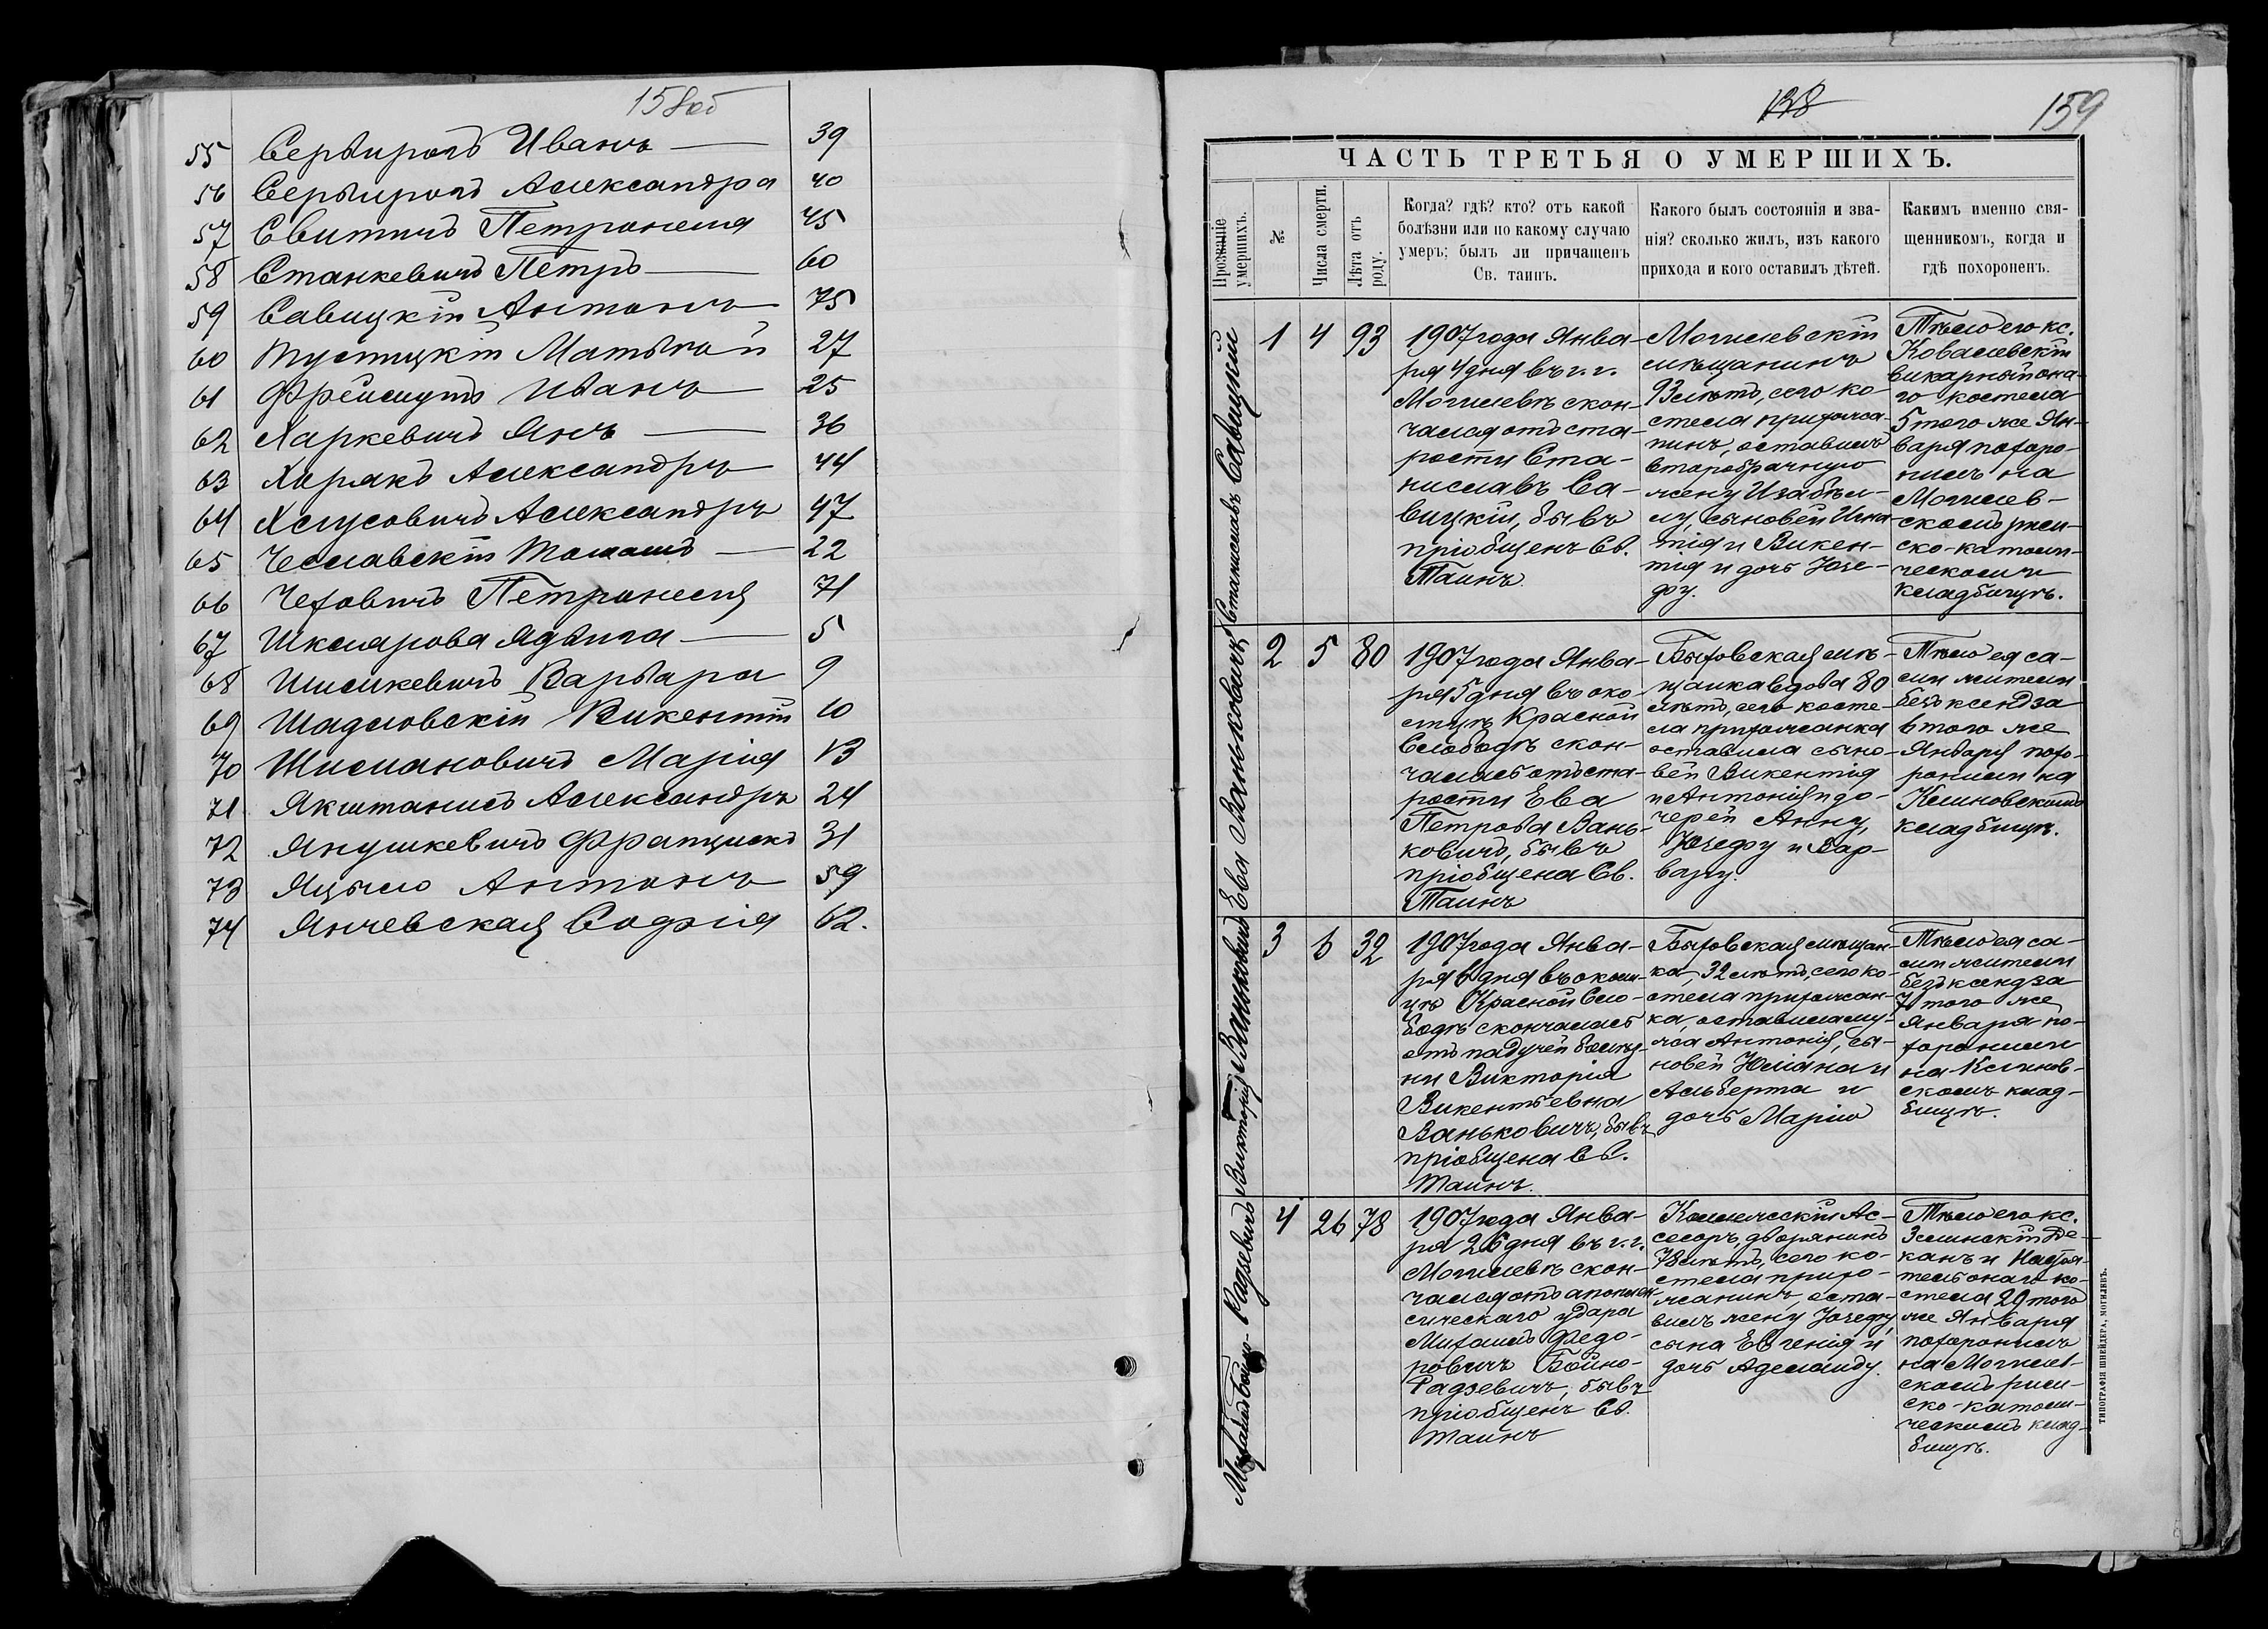 158об
55 Сервирогъ Иванъ — 39
56 Сервирогъ Александра 40
57 Свитичъ Петронеля 45
58 Станкевичъ Петръ — 60
59 Савицкій Антонъ 75
60 Матвѣй 27
61 Иванъ 25
62 Харкевичъ Янъ — 36
63 Хорякъ Александръ 44
64 Александръ 47
65 Чеславскій Томашъ — 22
66 Чеховичъ Петронеля 71
67 Шклярова Ядвига — 5
68 Шишкевичъ Варвара 9
69 Шадловскій Викентій 10
70 Шимановичъ Марія 13
71 Якштанисъ Александръ 24
72 Янушкевичъ Францискъ 31
73 Яцыло Антонъ 59
74 Янчевская Софія 62.
138
159
ЧАСТЬ ТРЕТЬЯ О УМЕРШИХЪ.
Прозваніе
умершихъ.
№
Числа смерти.
Лѣта отъ
роду.
Когда? гдѣ? кто? отъ какой
болѣзни или по какому случаю
умеръ; былъ ли причащенъ
Св. таинъ.
Какого былъ состоянія и зва-
нія? сколько жилъ, изъ какого
прихода и кого оставилъ дѣтей.
Какимъ именно свя-
щенникомъ, когда и
гдѣ похороненъ.
Станиславъ Савицкій
1 4 93
1907 года Янва-
ря 4 дня въ г. г.
Могилевѣ скон-
чался отъ ста-
рости Ста-
ниславъ Са-
вицкій, бывъ
пріобщенъ Св.
Таинъ.
Могилевскій
мѣщанинъ
93 лѣтъ, сего ко-
стела прихожа-
нинъ, оставилъ
второбрачную
жену Изабел-
лу, сыновей Игна-
тія и Викен-
тія и дочь Юзе-
фу.
Тѣло его кс.
Ковалевскій
викарный она-
го костела
5 того же Ян-
варя похоро-
нилъ на
Могилев-
скомъ рим-
ско-католи-
ческомъ
кладбищѣ.
Ева Ваньковичъ
2 5 80
1907 года Янва-
ря 5 дня въ око-
лицѣ Красной
Слободѣ скон-
чалась отъ ста-
рости Ева
Петрова Вань-
ковичъ, бывъ
пріобщена Св.
Таинъ
Быховская мѣ-
щанка вдова 80
лѣтъ, сего косте-
ла прихожанка
оставила сыно-
вей Викентія
и Антонія и до-
черей Анну,
Юзефу и Вар-
вару.
Тѣло ея са-
ми жители
безъ ксендза
6 того же
Января похо-
ронили на
Клиновскомъ
кладбищѣ.
Викторія Ваньковичъ
3 6 32
1907 года Янва-
ря 6 дня въ околи-
цѣ Красной Сло-
бодѣ скончалась
отъ падучей болѣз-
ни Викторія
Викентьевна
Ваньковичъ, бывъ
пріобщена Св.
Таинъ.
Быховская мѣщан-
ка, 32 лѣтъ, сего ко-
стела прихожан-
ка, оставила му-
жа Антонія, сы-
новей Юліана и
Альберта и
дочь Марію
Тѣло ея са-
ми жители
безъ ксендза
7 того же
Января по-
хоронили
на Клинов-
скомъ клад-
бищѣ.
Михаилъ Бойно-Радзевичъ
4 26 78
1907 года Янва-
ря 26 дня въ г. г.
Могилевѣ скон-
чался отъ апоплек-
сическаго удара
Михаилъ Федо-
ровичъ Бойно-
Радзевичъ, бывъ
пріобщенъ Св.
Таинъ
Коллежскій Ас-
сесоръ, дворянинъ
78 лѣтъ, сего ко-
стела прихо-
жанинъ, оста-
вилъ жену Юзефу,
сына Евгенія и
дочь Аделаиду.
Тѣло его кс.
Зелинскій Де-
канъ и Настоя-
тель онаго ко-
стела 29 того
же Января
похоронилъ
на Могилев-
скомъ рим-
ско-католи-
ческомъ клад-
бищѣ.
ТИПОГРАФІЯ ШНЕЙДЕРА, МОГИЛЕВЪ.